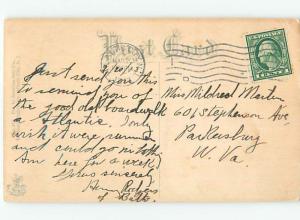 Post Card
3/20/13
Just send you this
to remind you of
the good old boardwalk
a Atlantic I only
wish it were summer
and could go in bath
Am here for a week
Yours sincerely
Henry
of Balto
Miss Mildred Martin
601 Stephenson Ave
Parkersburg
W. Va.